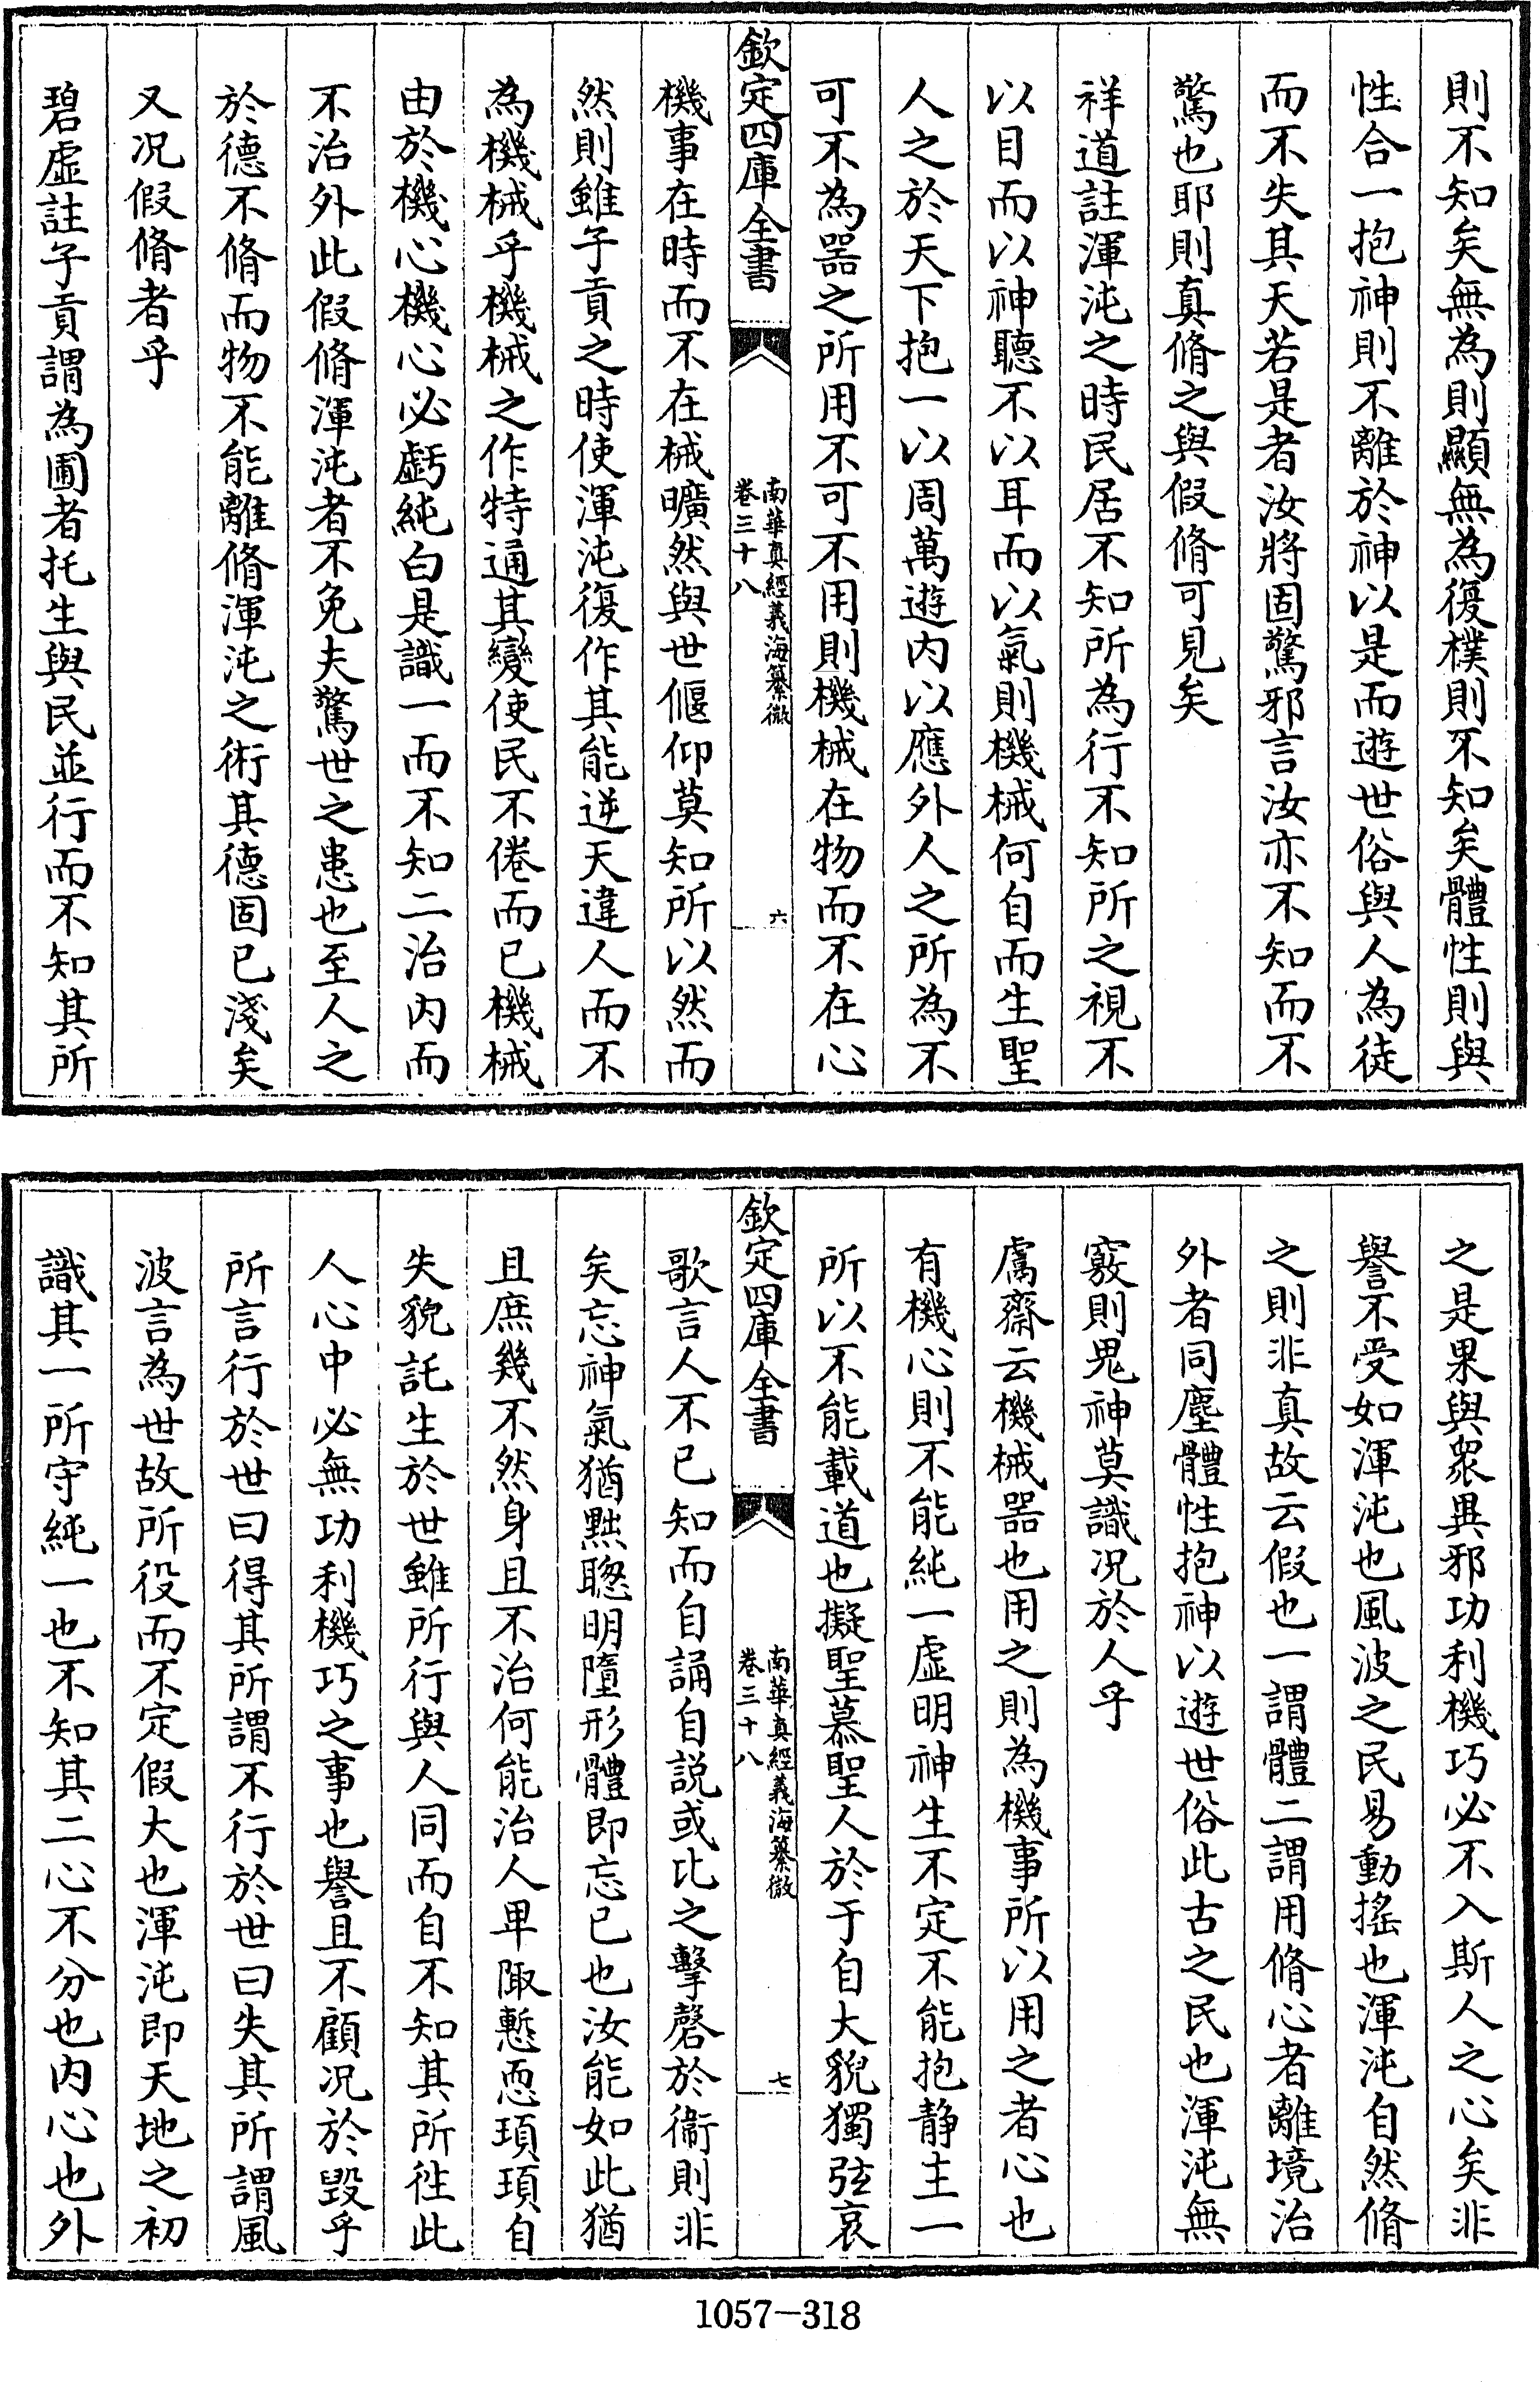 則不知矣無為則顯無為復樸則不知矣體性則與
性合一抱神則不離於神以是而遊世俗與人為徒
而不失其天若是者汝將固驚邪言汝亦不知而不
驚也耶則真脩之與假脩可見矣
祥道註渾沌之時民居不知所為行不知所之視不
以目而以神聽不以耳而以氣則機械何自而生聖
人之於天下抱一以周萬遊内以應外人之所為不
可不為器之所用不可不用則機械在物而不在心
欽定四庫全書
南華真經義海纂微
卷三十八
六
機事在時而不在械曠然與世偃仰莫知所以然而
然則雖子貢之時使渾沌復作其能逆天違人而不
為機械乎機械之作特通其變使民不倦而已機械
由於機心機心必虧純白是識一而不知二治内而
不治外此假脩渾沌者不免夫驚世之患也至人之
於德不脩而物不能離脩渾沌之術其德固已淺矣
又况假脩者乎
碧虚註子貢謂為圃者托生與民並行而不知其所
之是果與衆異邪功利機巧必不入斯人之心矣非
譽不受如渾沌也風波之民易動搖也渾沌自然脩
之則非真故云假也一謂體二謂用脩心者離境治
外者同塵體性抱神以遊世俗此古之民也渾沌無
竅則鬼神莫識况於人乎
鬳齋云機械器也用之則為機事所以用之者心也
有機心則不能純一虚明神生不定不能抱静主一
所以不能載道也擬聖慕聖人於于自大貌獨弦哀
欽定四庫全書
南華真經義海纂微
卷三十八
七
歌言人不已知而自誦自説或比之擊磬於衞則非
矣忘神氣猶黜聰明墮形體即忘已也汝能如此猶
且庶幾不然身且不治何能治人卑陬慙恧頊頊自
失貌託生於世雖所行與人同而自不知其所往此
人心中必無功利機巧之事也譽且不顧况於毀乎
所言行於世曰得其所謂不行於世曰失其所謂風
波言為世故所役而不定假大也渾沌即天地之初
識其一所守純一也不知其二心不分也内心也外
1057—318